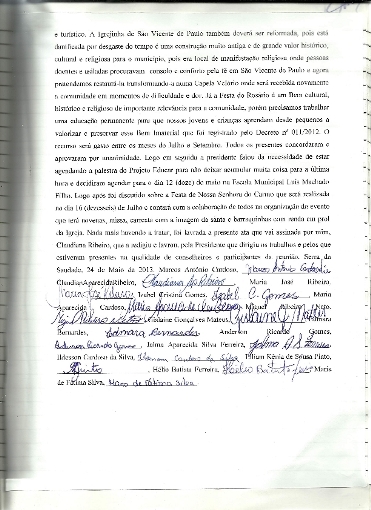 e turístico. A Igrejinha de São Vicente de Paulo também deverá ser reformada, pois está
danificada por desgaste do tempo é uma construção muito antiga e de grande valor histórico,
cultural e religiosa para o município, pois era local de manifestação religiosa onde pessoas
doentes e isiladas procuravam consolo e conforto pela fé em São Vicente de Paulo e agora
pretendemos restaurá-la transformando-a numa Capela Velório onde será recebida novamente
a comunidade em momentos de dificuldade e dor. Já a Festa do Rosário é um Bem cultural,
histórico e religioso de importante relevância para a comunidade, porém precisamos trabalhar
uma educação permanente para que nossos jovens e crianças aprendam desde pequenos a
valorizar e preservar esse Bem Imaterial que foi registrado pelo Decreto nº 011/2012. O
recurso será gasto entre os meses do Julho a Setembro. Todos os presentes concordaram e
aprovaram por unanimidade. Logo em seguida a presidente falou da necessidade de estar
agendando a palestra do Projeto Educar para não deixar acumular muita coisa para a última
hora e decidiram agendar para o dia 12 (doze) de maio na Escola Municipal Luis Machado
Filho. Logo após foi discutido sobre a Festa de Nossa Senhora do Carmo que será realizada
no dia 16 (dezesseis) de Julho e contará com a colaboração de todos na organização do evento
que terá novenas, missa, carreata com a imagem da santa e barraquinhas com renda em prol
da Igreja. Nada mais havendo a tratar, foi lavrada a presente ata que vai assinada por mim,
Claudiana Ribeiro, que a redigiu e lavrou, pela Presidente que dirigiu os trabalhos e pelos que
estiveram presentes na qualidade de conselheiros e participantes da reunião. Serra da
Saudade, 24 de Maio de 2013. Marcos Antônio Cardoso, Marcos Antônio Cardoso
ClaudianAparecidaRibeiro, Maria José Ribeiro,
Maria José Ribeiro, Izabel Cristina Gomes, Izabel C. Gomes, Maria
Aparecida Cardoso, Miguel Ribeiro Neto,
Gonçalves Mateus,
Bernardes, Bernardes Anderson Ricardo Gomes,
Anderson Ricardo Gomes, Jalma Aparecida Silva Ferreira, Jalma A. S. Ferreira
Ildesson Cardoso da Silva, Cardoso da Silva, Kênia de Sousa Pinto,
Hélio Batista Ferreira, Hélio Batista Maria
de Fátima Silva. Maria de Fátima Silva